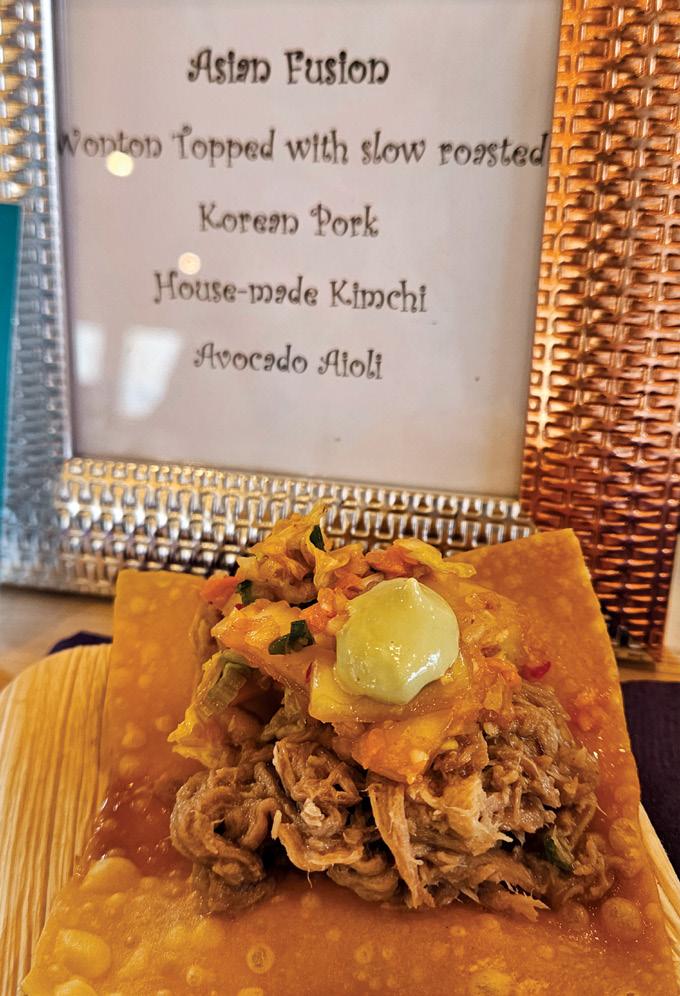 Asian Fusion
Wonton Topped with slow roasted
Korean Pork
House-made Kimchi
Avocado Aioli